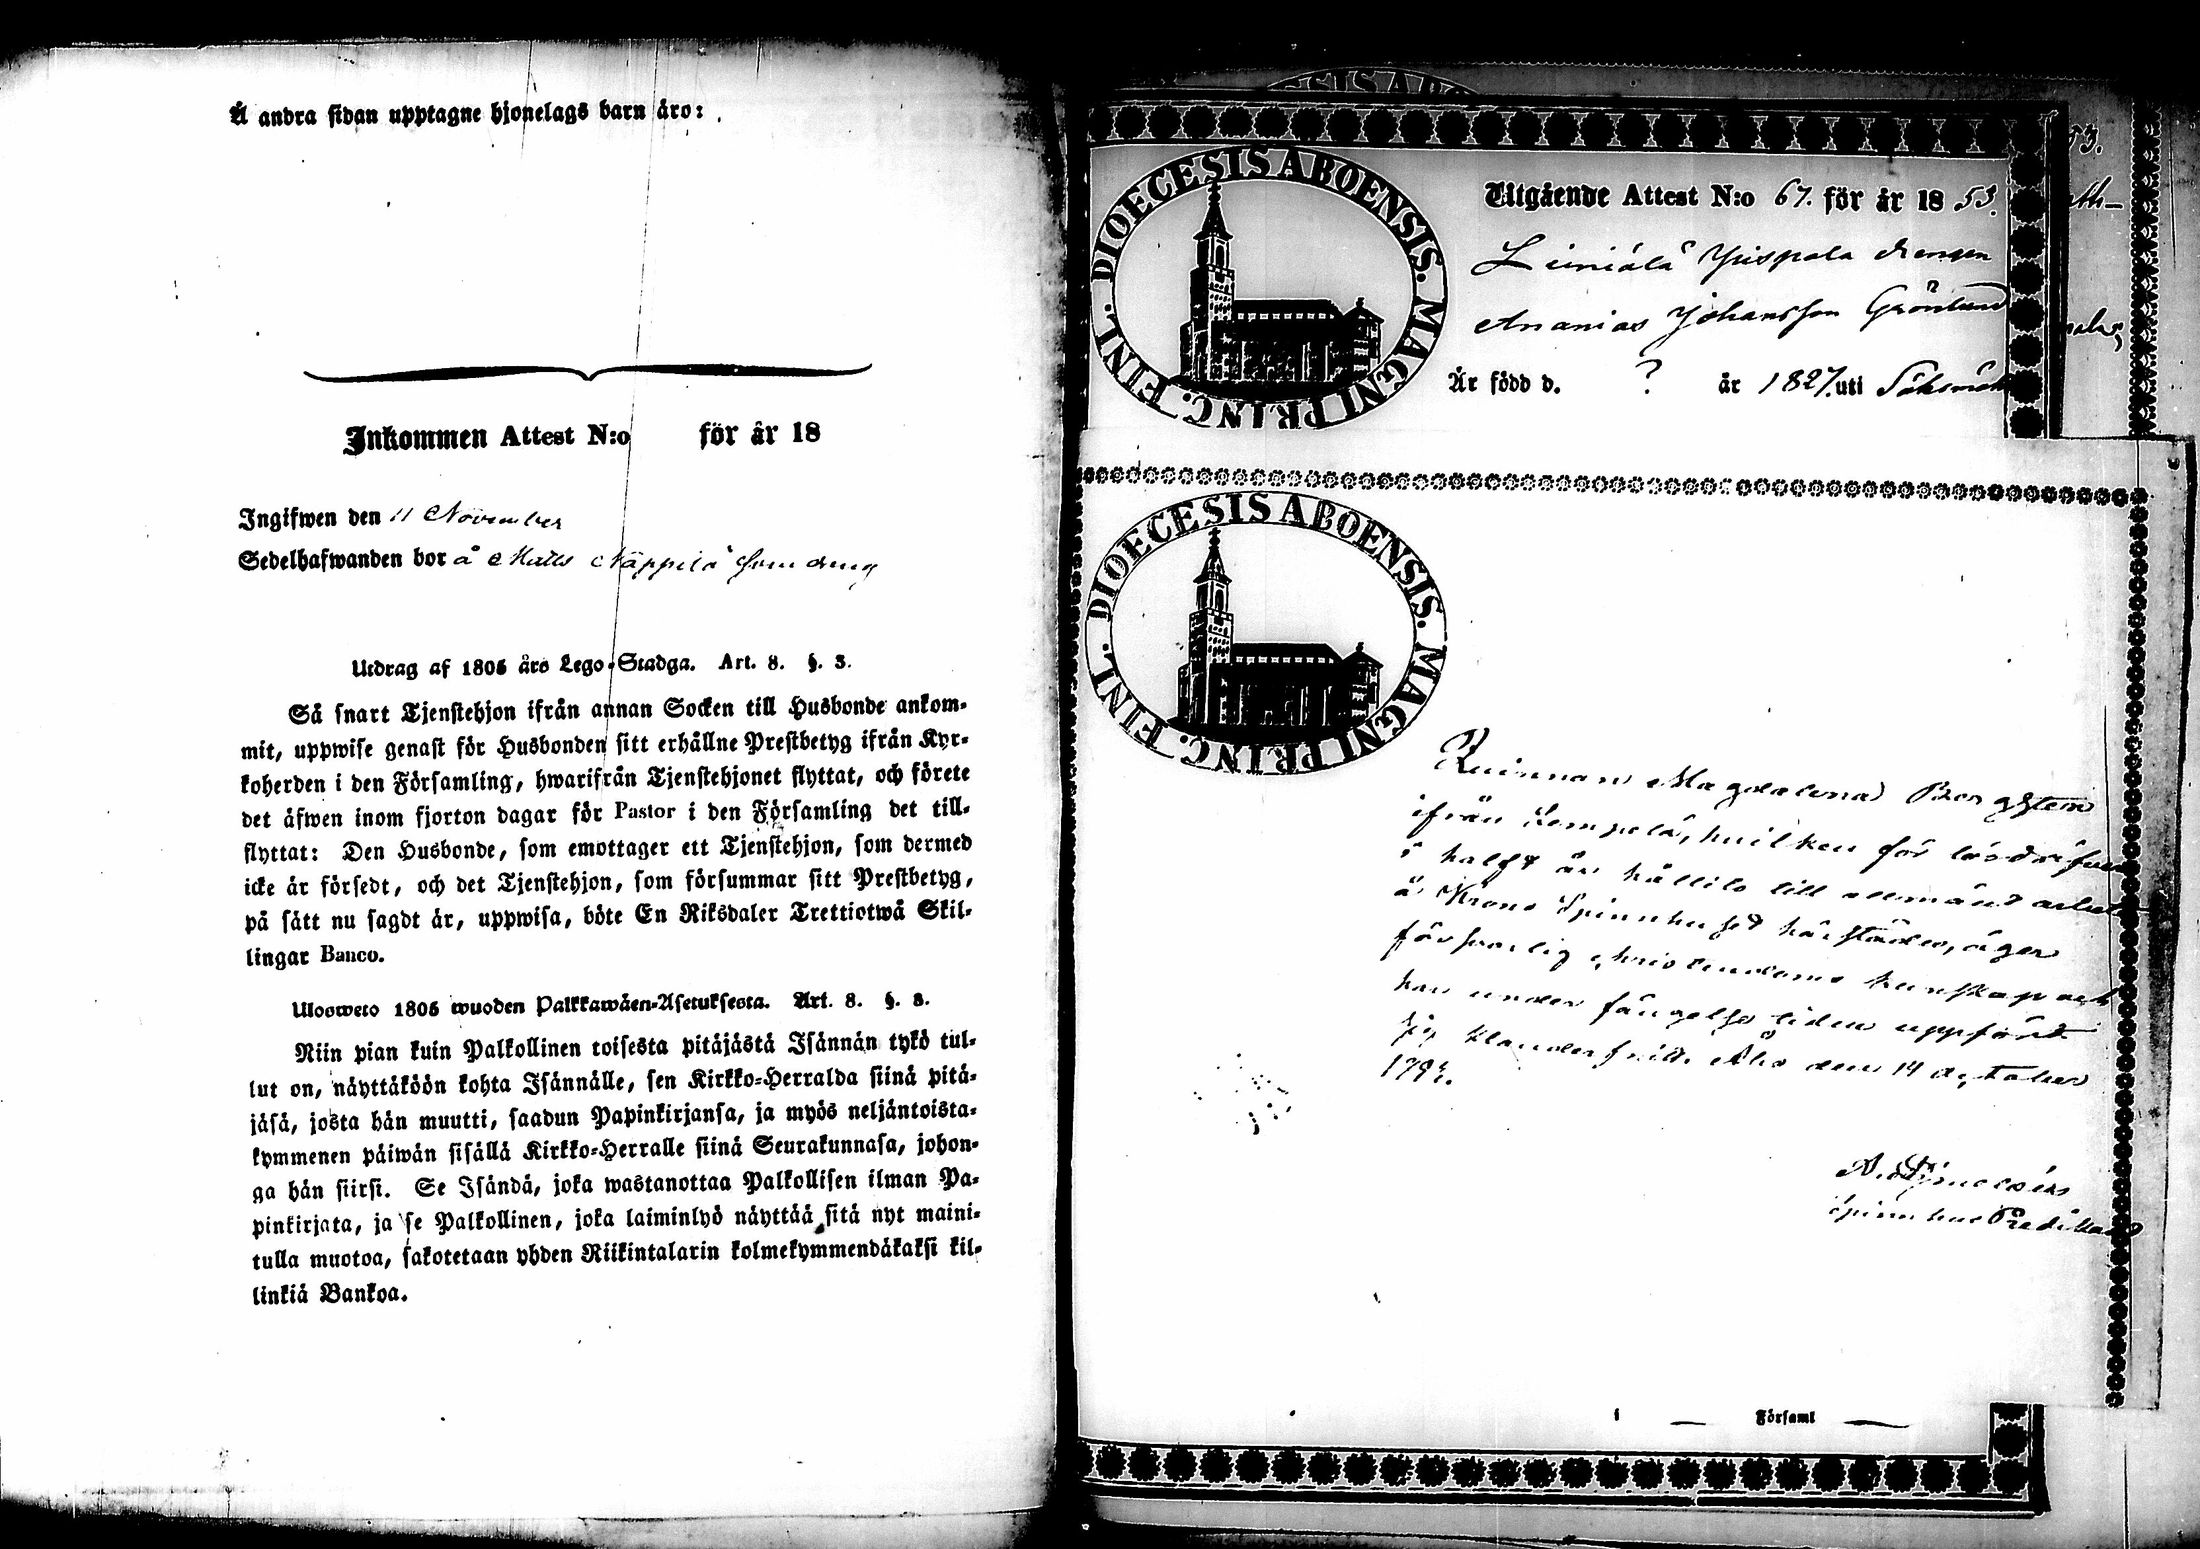 Å andra sidan upptagne hjonelags barn äro:
Inkommen Attest N:o för år 18
Ingifwen den 11 November
Sedelhafwanden bor å Matts Näppilä som dräng
Utdrag af 1805 års Lego-Stadga. Art. 8. §. 3.
Så snart Tjenstehjon ifrån annan Socken till Husbonde ankom-
mit, uppwise genast för Husbonden sitt erhållne Prestbetyg ifrån Kyr-
koherden i den Församling, hwarifrån Tjenstehjonet flyttat, och förete
det äfwen inom fjorton dagar för Pastor i den Församling det till-
flyttat: Den Husbonde, som emottager ett Tjenstehjon, som dermed
icke är försedt, och det Tjenstehjon, som försummar sitt Prestbetyg,
på sätt nu sagdt är, uppwisa, böte En Riksdaler Trettiotwå Skil-
lingar Banco.
Ulosweto 1805 wuoden Palkkawäen-Asetuksesta. Art. 8. §. 3.
Niin pian kuin Palkollinen toisesta pitäjästä Isännän tykö tul-
lut on, näyttäköön kohta Isännälle, sen Kirkko-Herralda siinä pitä-
jäsä, josta hän muutti, saadun Papinkirjansa, ja myös neljäntoista-
kymmenen päiwän sisällä Kirkko-Herralle siinä Seurakunnasa, johon-
ga hän siirsi. Se Isändä, joka wastanottaa Palkollisen ilman Pa-
pinkirjata, ja se Palkollinen, joka laiminlyö näyttää sitä nyt maini-
tulla muotoa, sakotetaan yhden Riikintalarin kolmekymmendäkaksi kil-
linkiä Bankoa.
DIOECESIS ABOENSIS. MAGNI PRINC. FINL.
Utgående Attest N:o 67. för år 1853.
Yrispala drengen
Ananias Johansson Grönlund
Är född d. ? år 1827. uti
DIOECESIS ABOENSIS. MAGNI PRINC. FINL.
Quinnan Magdalena Bergsten
ifrån Lempelä, hvilken för lösdrifveri
i halft år hållits till allmänt arbete
å Krono Spinnhuset härstädes, äger
försvarlig christendoms kunskap och
har under fängelse tiden uppfört
sig klanderfritt. Åbo den 14 October
Spinnhus Predikant
i Församl